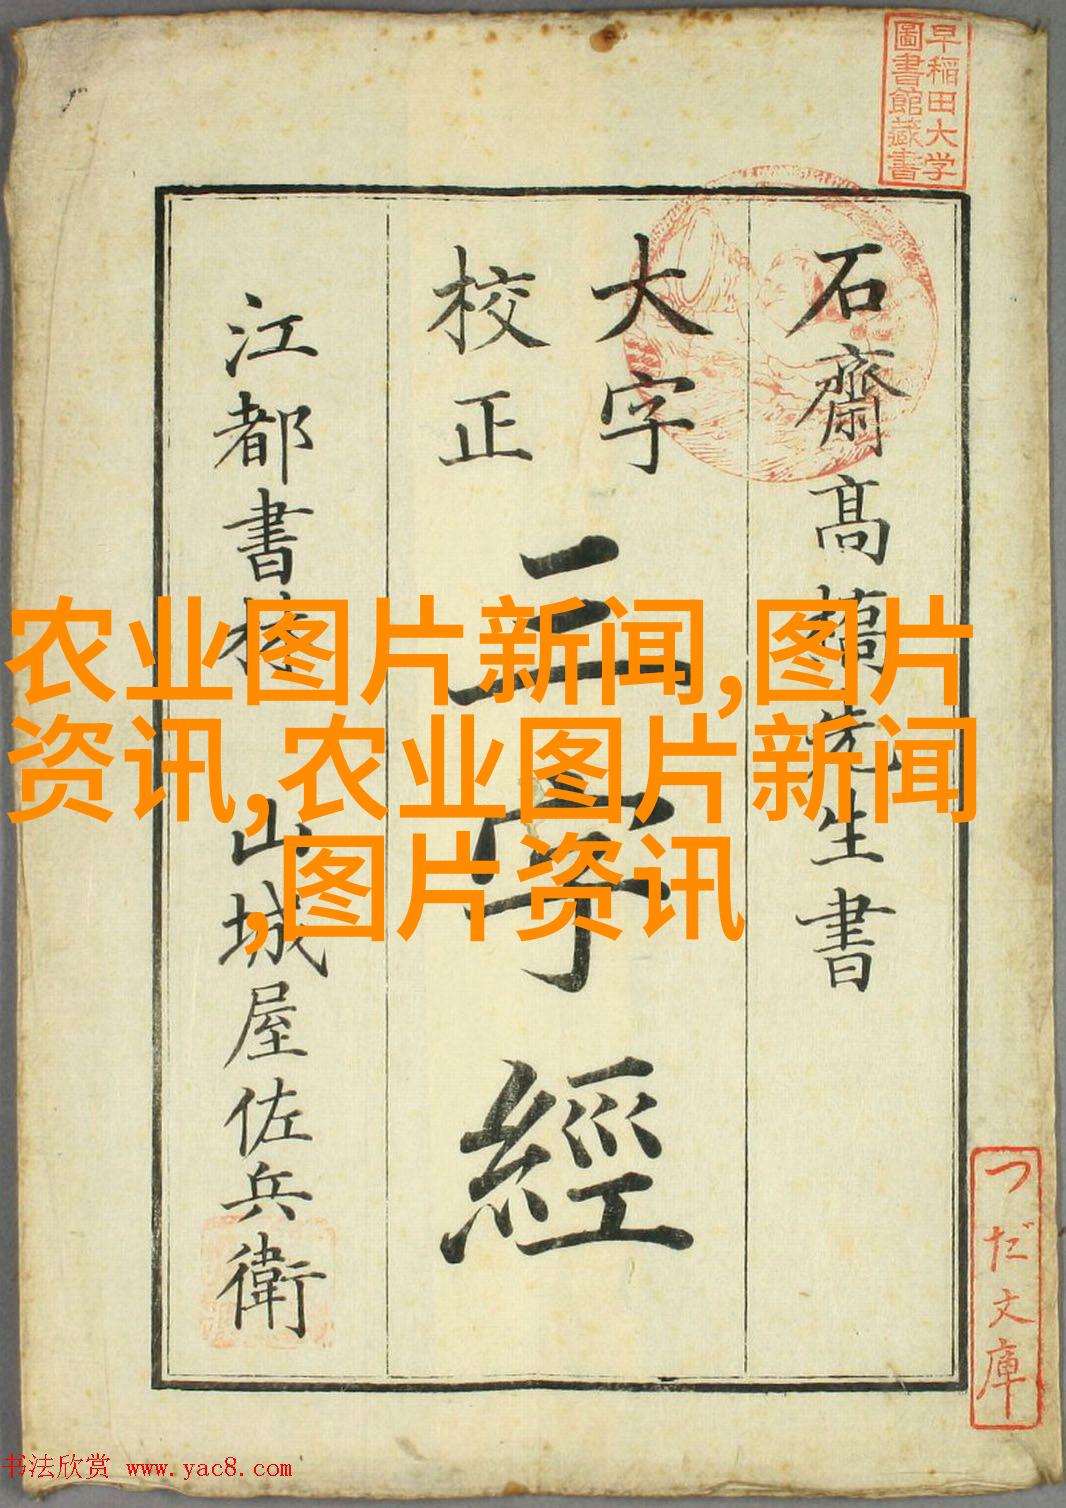 早稲田大学
圖書館藏書
石齋髙橋先生書
大字
校正
三字經
江都書林 山城屋佐兵衛
つだ文庫
农业图片新闻,图片
资讯,农业图片新闻
,图片资讯
书法欣赏 www.yac8.com